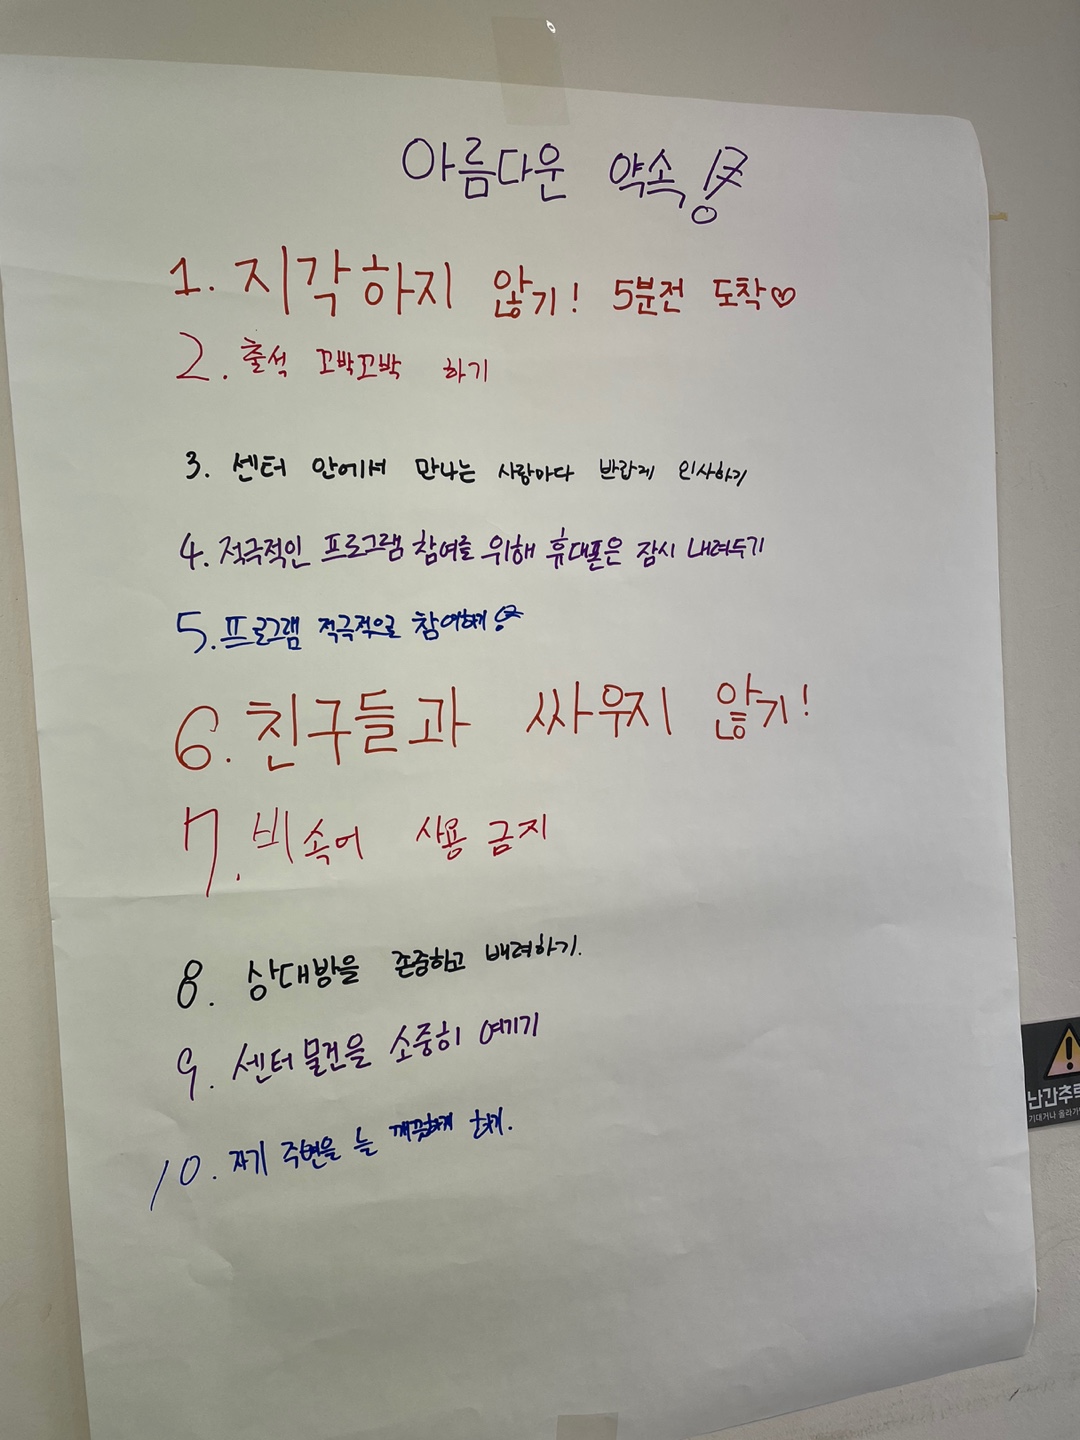 아름다운 약속!
1. 지각하지 않기! 5분전 도착♡
2. 출석 꼬박꼬박 하기
3. 센터 안에서 만나는 사람마다 반갑게 인사하기
4. 적극적인 프로그램 참여를 위해 휴대폰은 잠시 내려두기
5. 프로그램 적극적으로 참여하게!
6. 친구들과 싸우지 않기!
7. 비속어 사용 금지
8. 상대방을 존중하고 배려하기.
9. 센터 물건을 소중히 여기기
10. 자기 주변을 늘 깨끗하게 하게.
난간추락
기대거나 올라가